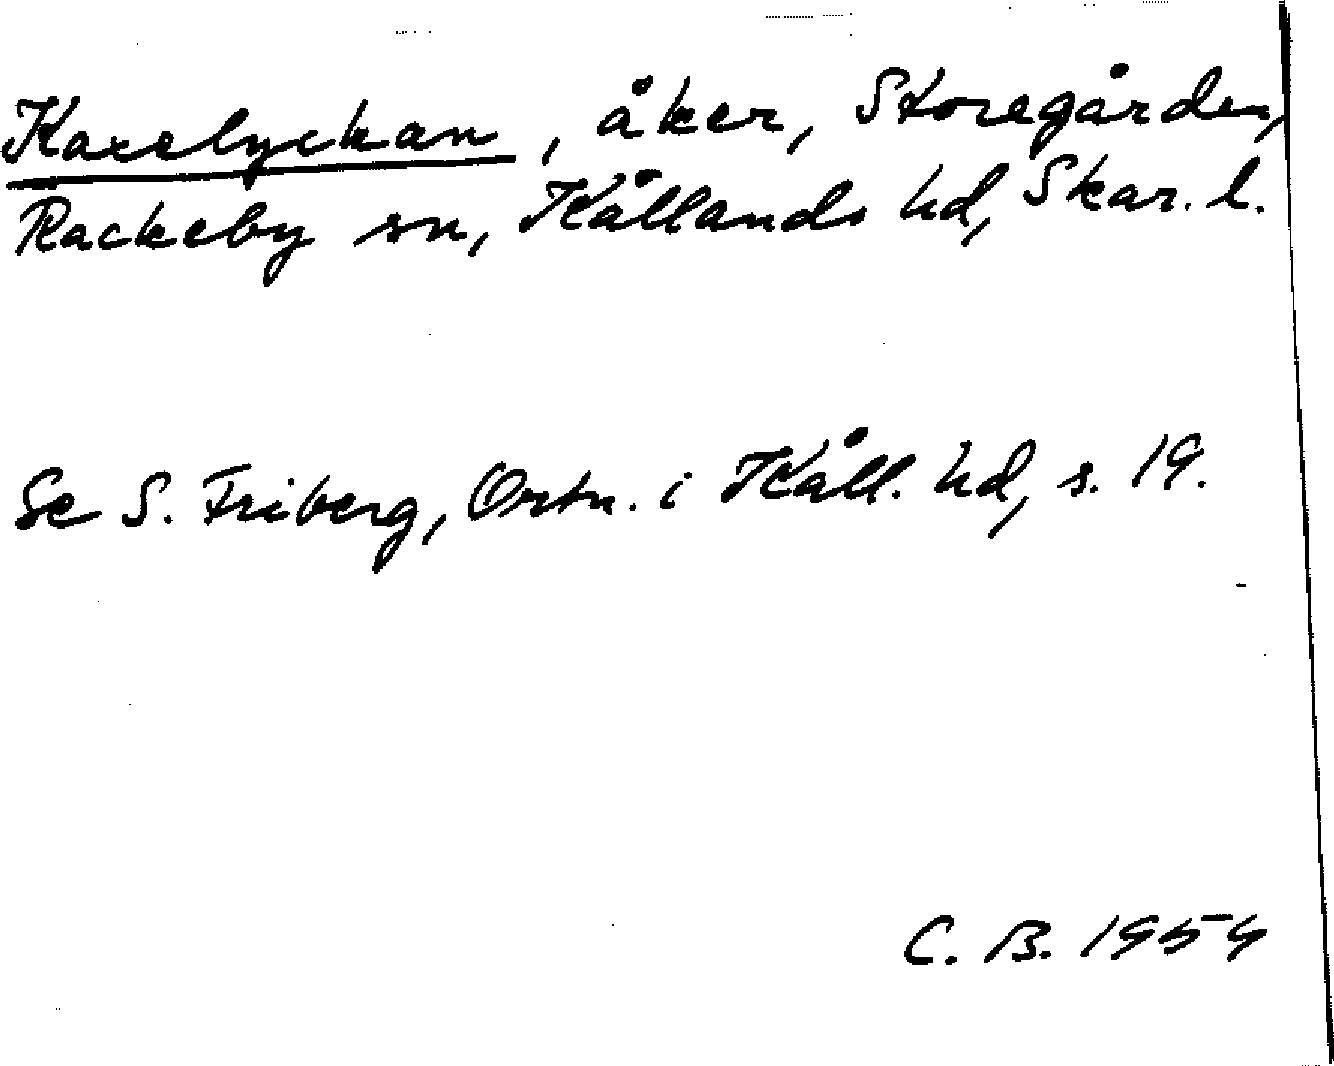 Karelyckan, åker, Storegården,
Rackeby sn, Kållands hd, Skar. l.
Se S. Friberg, Ortn. i Kåll. hd, s. 19.
C. B. 1959